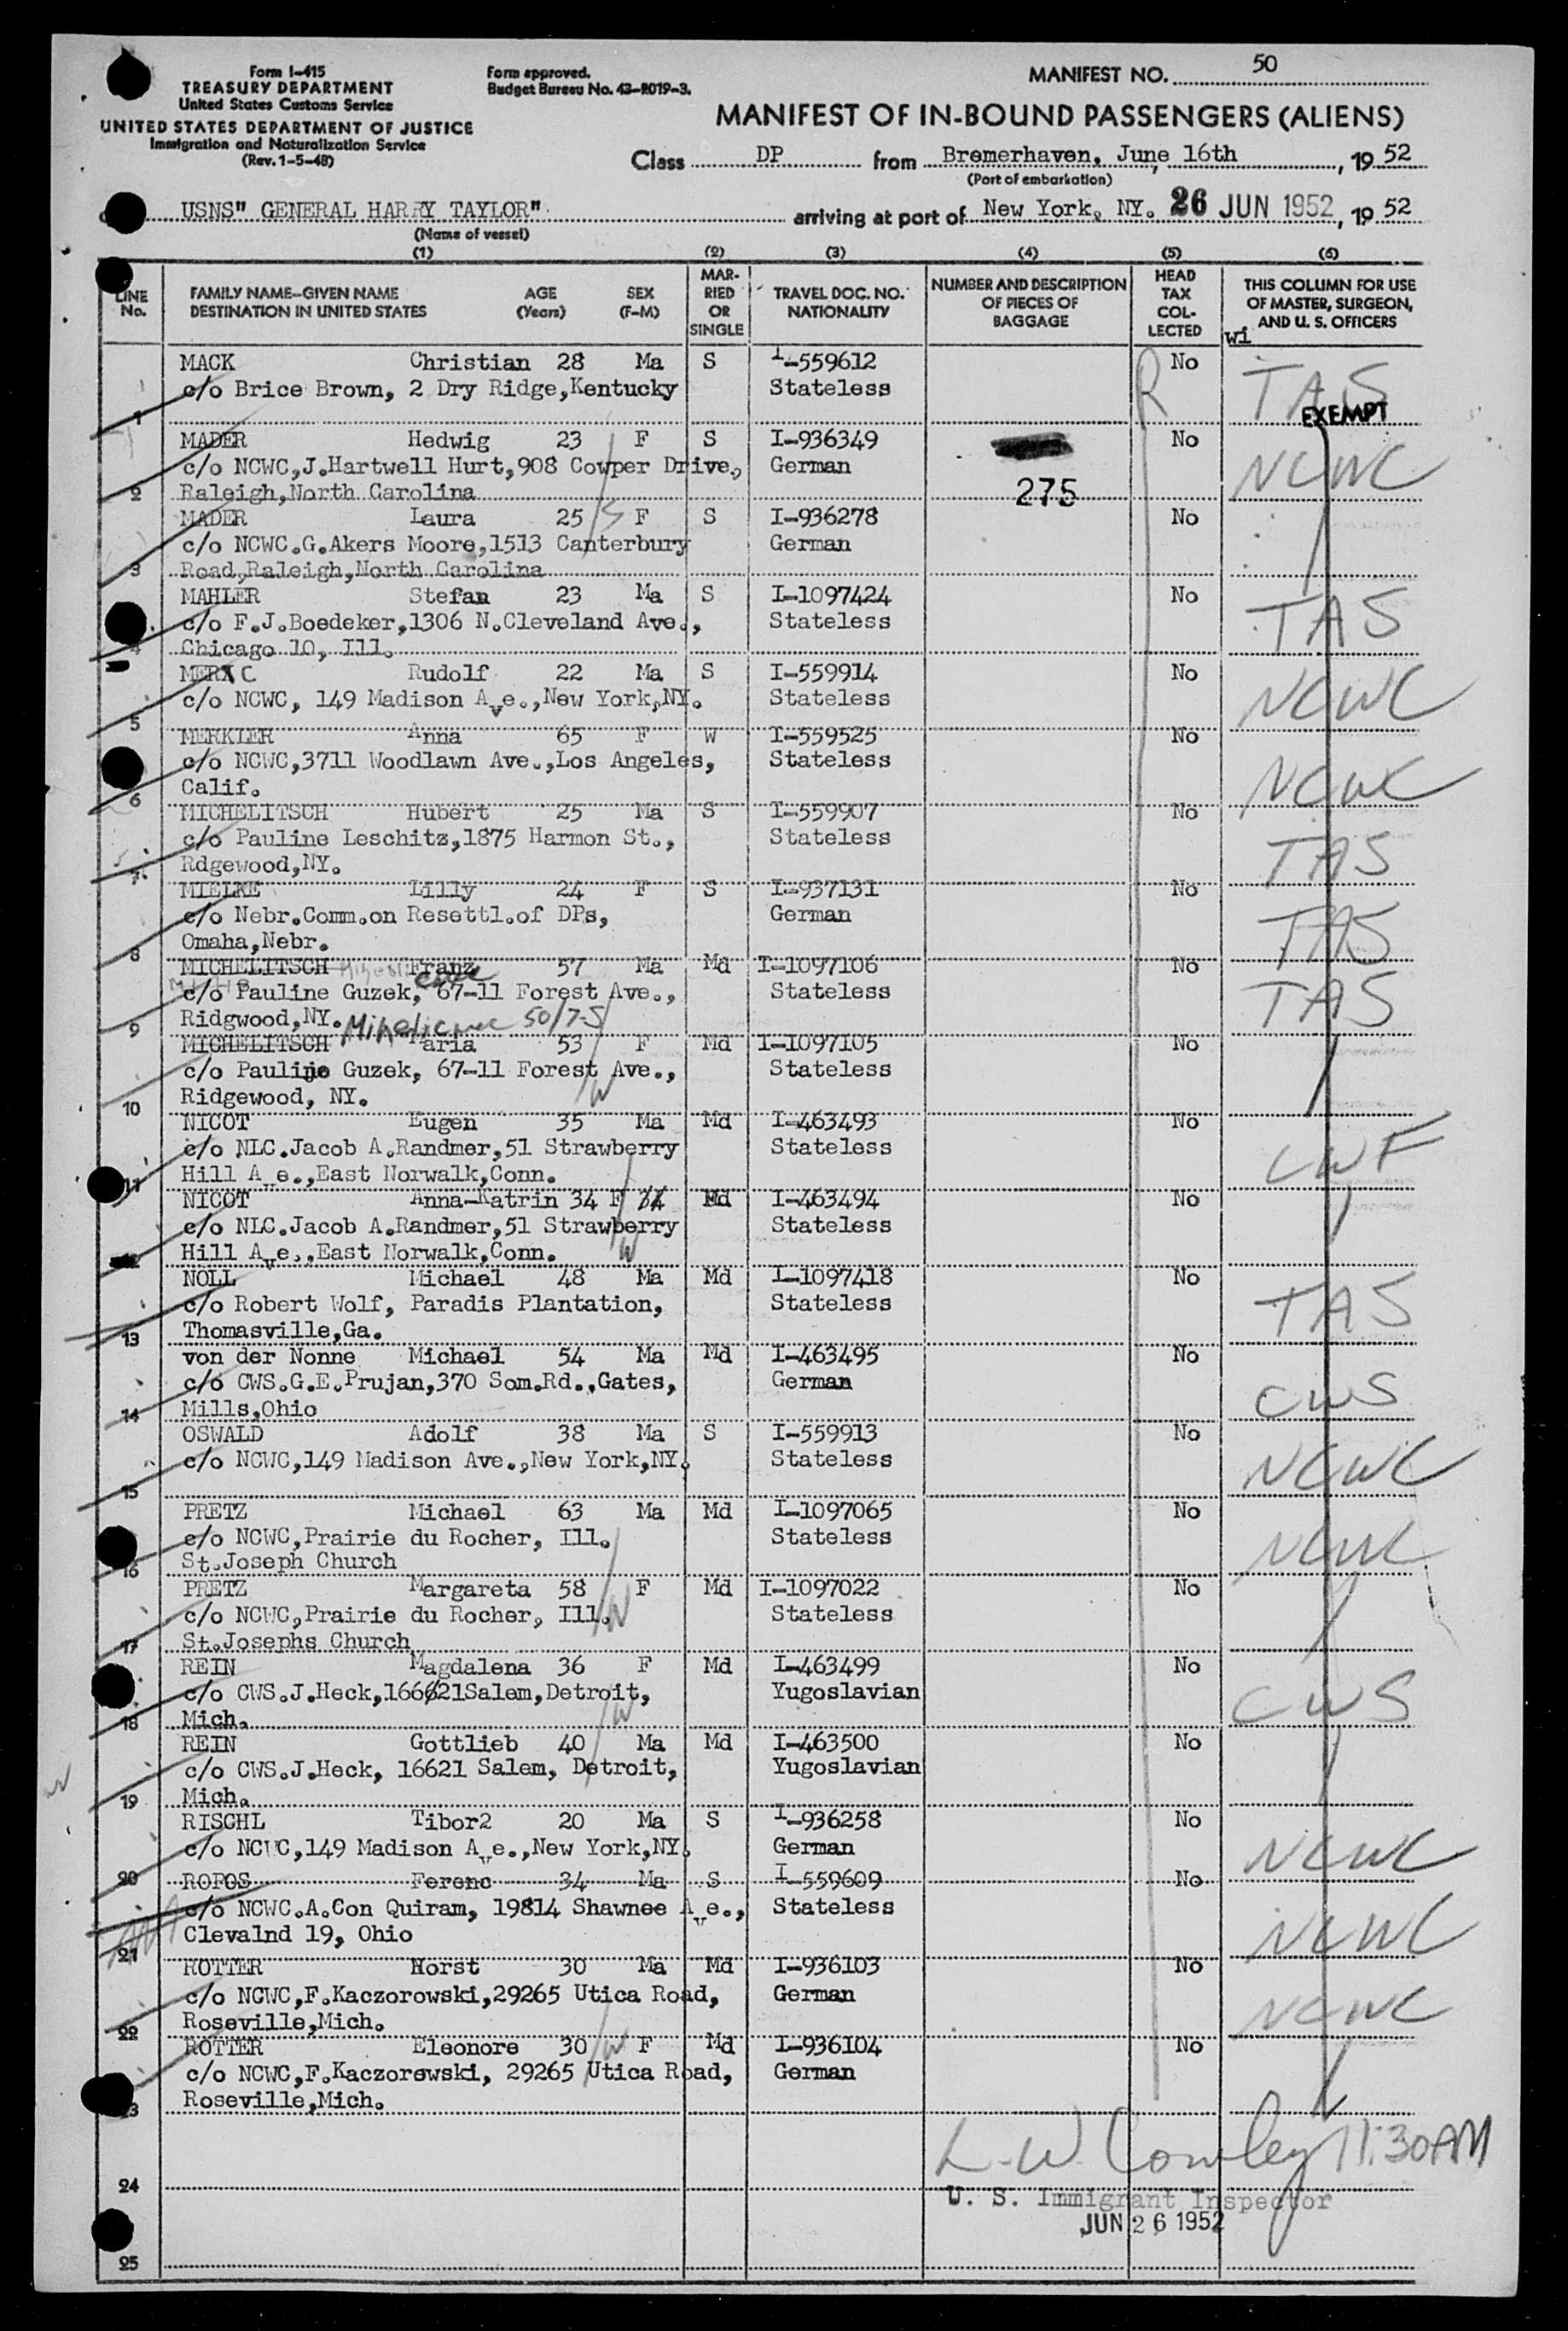 Form I-415
TREASURY DEPARTMENT
United States Customs Service
UNITED STATES DEPARTMENT OF JUSTICE
Immigration and Naturalization Service
(Rev. 1-5-48)
Form approved.
Budget Bureau No. 43-R019-3.
MANIFEST NO. 50
MANIFEST OF IN-BOUND PASSENGERS (ALIENS)
Class DP from Bremerhaven, June 16th, 19 52
(Port of embarkation)
USNS" GENERAL HARRY TAYLOR" arriving at port of New York, NY. 26 JUN 1952, 19 52
(Name of vessel)
(1) (2) (3) (4) (5) (6)
LINE No. FAMILY NAME—GIVEN NAME DESTINATION IN UNITED STATES AGE (Years) SEX (F-M) MARRIED OR SINGLE TRAVEL DOC. NO. NATIONALITY NUMBER AND DESCRIPTION OF PIECES OF BAGGAGE HEAD TAX COLLECTED THIS COLUMN FOR USE OF MASTER, SURGEON, AND U. S. OFFICERS
wi
MACK Christian 28 Ma S I-559612 R No TAS
c/o Brice Brown, 2 Dry Ridge,Kentucky Stateless
1 EXEMPT
MADER Hedwig 23 F S I-936349 No NCWC
c/o NCWC,J.Hartwell Hurt,908 Cowper Drive., German
2 Raleigh,North Carolina 275
MADER Laura 25 F S I-936278 No
c/o NCWC.G.Akers Moore,1513 Canterbury German
3 Road,Raleigh,North Carolina
MAHLER Stefan 23 Ma S I-1097424 No TAS
c/o F.J.Boedeker,1306 N.Cleveland Ave., Stateless
4 Chicago 10, Ill.
MERXC Rudolf 22 Ma S I-559914 No NCWC
c/o NCWC, 149 Madison Ave.,New York,NY. Stateless
5
MERKLER Anna 65 F W I-559525 No NCWC
c/o NCWC,3711 Woodlawn Ave.,Los Angeles, Stateless
6 Calif.
MICHELITSCH Hubert 25 Ma S I-559907 No TAS
c/o Pauline Leschitz,1875 Harmon St., Stateless
7 Rdgewood,NY.
MIELKE Lilly 24 F S I-937131 No TAS
c/o Nebr.Comm.on Resettl.of DPs, German
8 Omaha,Nebr.
MICHELITSCH Franz 57 Ma Md I-1097106 No TAS
c/o Pauline Guzek, 67-11 Forest Ave., Stateless
9 Ridgwood,NY.
MICHELITSCH Maria 53 F Md I-1097105 No
c/o Pauline Guzek, 67-11 Forest Ave., Stateless
10 Ridgewood, NY.
NICOT Eugen 35 Ma Md I-463493 No LWF
c/o NLC.Jacob A.Randmer,51 Strawberry Stateless
11 Hill Ave.,East Norwalk,Conn.
NICOT Anna-Katrin 34 F Md I-463494 No
c/o NLC.Jacob A.Randmer,51 Strawberry Stateless
12 Hill Ave.,East Norwalk,Conn.
NOLL Michael 48 Ma Md I-1097418 No TAS
c/o Robert Wolf, Paradis Plantation, Stateless
13 Thomasville,Ga.
von der Nonne Michael 54 Ma Md I-463495 No CWS
c/o CWS.G.E.Prujan,370 Som.Rd.,Gates, German
14 Mills,Ohio
OSWALD Adolf 38 Ma S I-559913 No NCWC
c/o NCWC,149 Madison Ave.,New York,NY. Stateless
15
PRETZ Michael 63 Ma Md I-1097065 No NCWC
c/o NCWC,Prairie du Rocher, Ill. Stateless
16 St.Joseph Church
PRETZ Margareta 58 F Md I-1097022 No
c/o NCWC,Prairie du Rocher, Ill. Stateless
17 St.Josephs Church
REIN Magdalena 36 F Md I-463499 No CWS
c/o CWS.J.Heck,16621Salem,Detroit, Yugoslavian
18 Mich.
REIN Gottlieb 40 Ma Md I-463500 No
c/o CWS.J.Heck, 16621 Salem, Detroit, Yugoslavian
19 Mich.
RISCHL Tibor2 20 Ma S I-936258 No NCWC
c/o NCWC,149 Madison Ave.,New York,NY. German
20 ROPOS Ferenc 34 Ma S I-559609 No
c/o NCWC.A.Con Quiram, 19814 Shawnee Ave., Stateless NCWC
21 Clevalnd 19, Ohio
ROTTER Horst 30 Ma Md I-936103 No NCWC
c/o NCWC,F.Kaczorowski,29265 Utica Road, German
22 Roseville,Mich.
ROTTER Eleonore 30 W F Md I-936104 No
c/o NCWC,F.Kaczorowski, 29265 Utica Road, German
23 Roseville,Mich.
L.W. Conley 11:30AM
24
U. S. Immigrant Inspector
JUN 26 1952
25